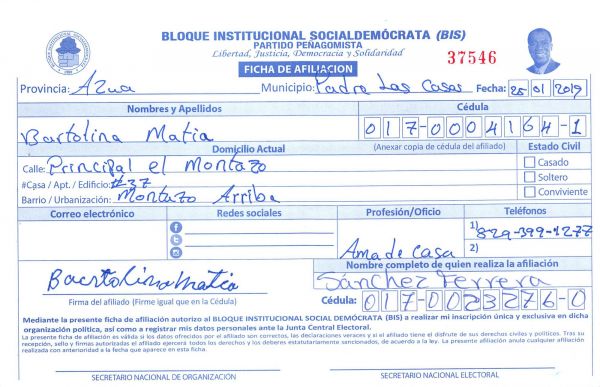 BLOQUE INSTITUCIONAL SOCIALDEMÓCRATA (BIS)
PARTIDO PEÑAGOMISTA
Libertad, Justicia, Democracia y Solidaridad
37546
FICHA DE AFILIACIÓN
Provincia: Azua Municipio: Padre Las Casas Fecha: 25 01 2019
Nombres y Apellidos Cédula
Bartolina Matia 017-0004164-1
Domicilio Actual (Anexar copia de cédula del afiliado) Estado Civil
Calle: Principal el Montazo Casado
#Casa / Apt. / Edificio: #37 Soltero
Barrio / Urbanización: Montazo Arriba Conviviente
Correo electrónico Redes sociales Profesión/Oficio Teléfonos
1) 829-399-1277
Ama de casa 2)
Nombre completo de quien realiza la afiliación
Bartolina Matia Sánchez Ferrera
Firma del afiliado (Firme igual que en la Cédula) Cédula: 017-0023276-0
Mediante la presente ficha de afiliación autorizo al BLOQUE INSTITUCIONAL SOCIAL DEMÓCRATA (BIS) a realizar mi inscripción única y exclusiva en dicha
organización política, así como a registrar mis datos personales ante la Junta Central Electoral.
La presente ficha de afiliación es válida si los datos ofrecidos por el afiliado son correctos, las declaraciones veraces y si el afiliado tiene el disfrute de sus derechos civiles y políticos. Tras su
recepción, sello y firmas autorizadas el afiliado ejercerá todos los derechos y deberes estatutariamente sancionados, de acuerdo a la ley. La presente afiliación anula cualquier afiliación
realizada con anterioridad a la fecha que aparece en esta ficha.
SECRETARIO NACIONAL DE ORGANIZACIÓN SECRETARIO NACIONAL ELECTORAL